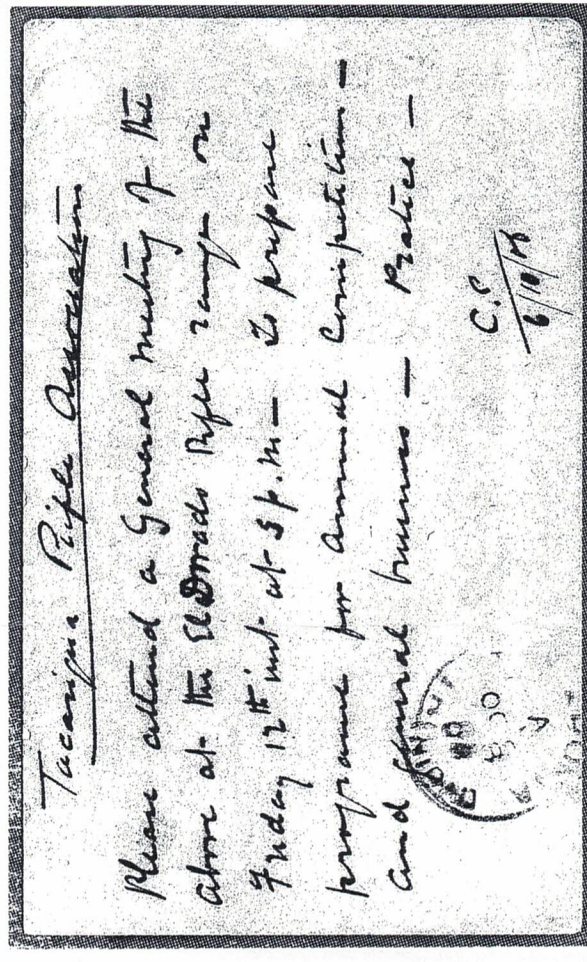 Tacarigua Rifle Association
Please attend a General Meeting of the
above at the El Dorado Rifle range on
Friday 12th inst at 5 p.m — To prepare
programe for Annual Competition —
and general business — Practice —
C.P
6/10/06